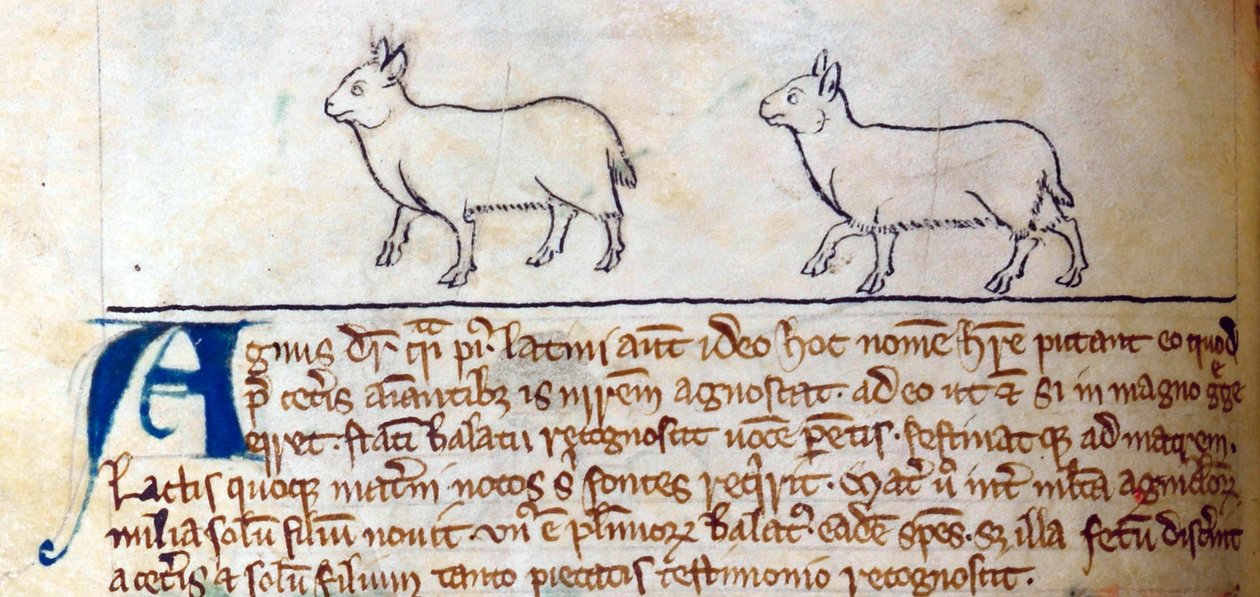 Agnus dr̄ qͣi pi᷒. latini aūt ideo hoc nom̄e hr̄e putant eo quod
p̄ cet̄is aīantibꝫ is m̄rem̄ agnoscat. ad eo ut ⁊ si in magno gͤge
erret. statī balatu recognoscit uoc̄e par̄etis. festinatqꝫ ad matrem.
Lactis quoqꝫ mat̄ni notos s̄ fontes reqͥrit. Mat̄ ū int̄ mlt̄a agnicłoꝝ
milia solū filiū nouit. vn᷒ ē plīmoꝝ balat᷒. eadē sp̄es. sꝫ illa fetū disc̄nit
a cet̄is ⁊ solū filium tanto pietatis testimonio recognoscit.